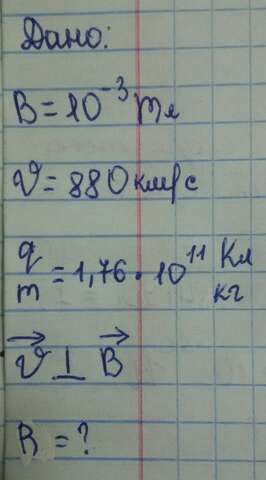 Дано:
B = 10⁻³ Тл
V = 880 км/с
q/m = 1,76 · 10¹¹ Кл/кг
V⃗ ⊥ B⃗
R = ?